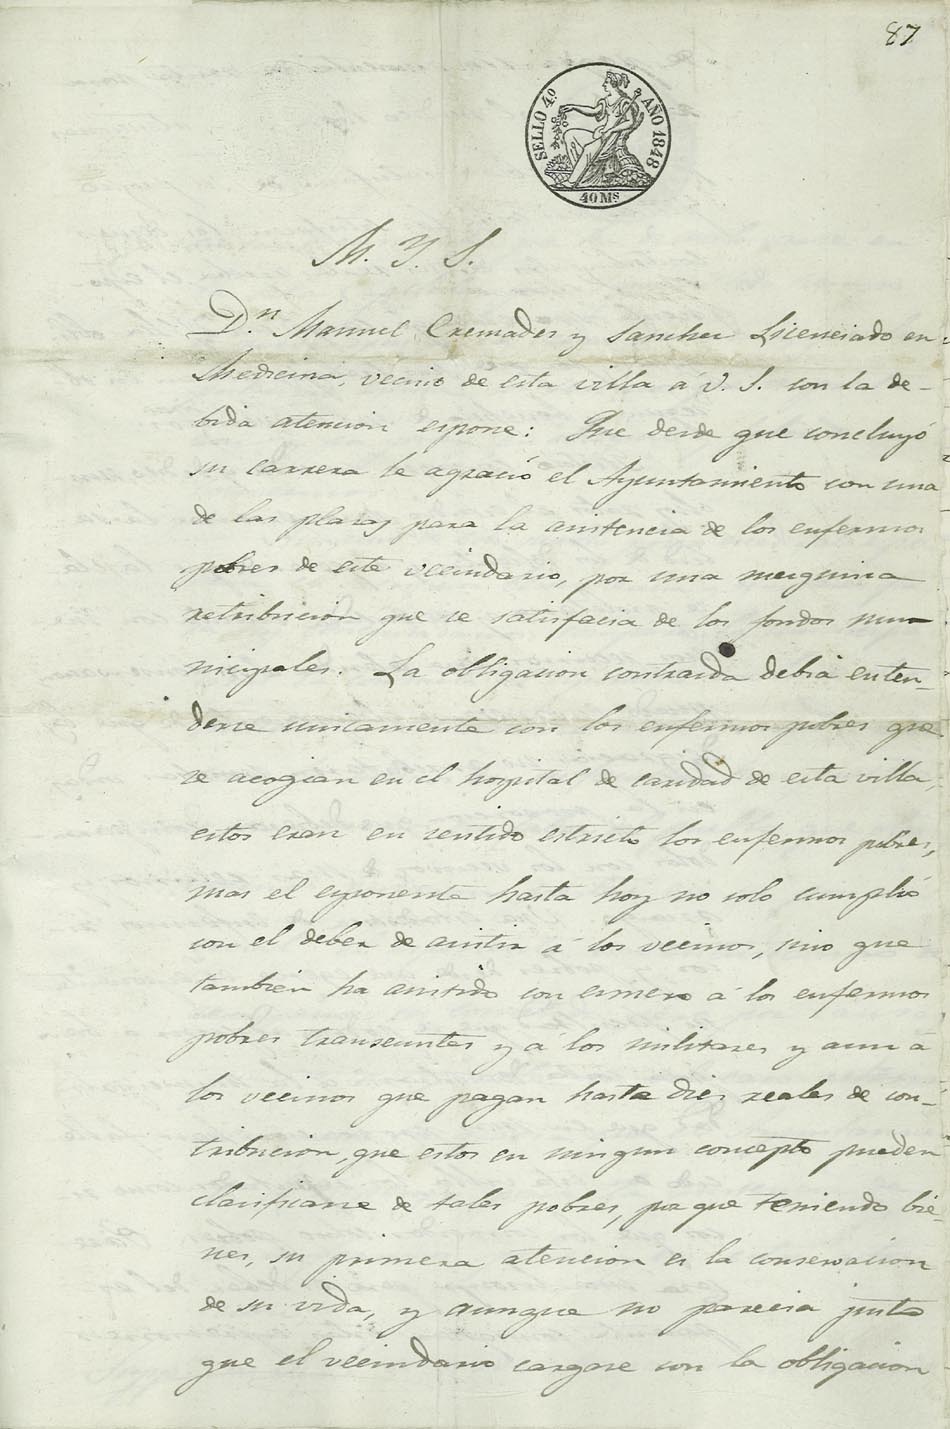 87
SELLO 4.º AÑO 1848
40 Mˢ
M. Y. S.
D.ⁿ Manuel Cremades y Sanchez Licenciado en
Medicina, vecino de esta villa á V. S. con la de-
bida atencion espone: Que desde que concluyó
su carrera le agració el Ayuntamiento con una
de las plazas para la asistencia de los enfermos
pobres de este vecindario, por una mezquina
retribucion que se satisfacia de los fondos mu-
nicipales. La obligacion contraida debia enten-
derse unicamente con los enfermos pobres que
se acogian en el hospital de caridad de esta villa,
estos eran en sentido estricto los enfermos pobres,
mas el esponente hasta hoy no solo cumplió
con el deber de asistir á los vecinos, sino que
tambien ha asistido con esmero á los enfermos
pobres transeuntes y á los militares y aun á
los vecinos que pagan hasta dies reales de con-
tribucion, que estos en ningun concepto pueden
clasificarse de tales pobres, porque teniendo bie-
nes, su primera atencion es la conservacion
de su vida, y aunque no parecia justo
que el vecindario cargase con la obligacion